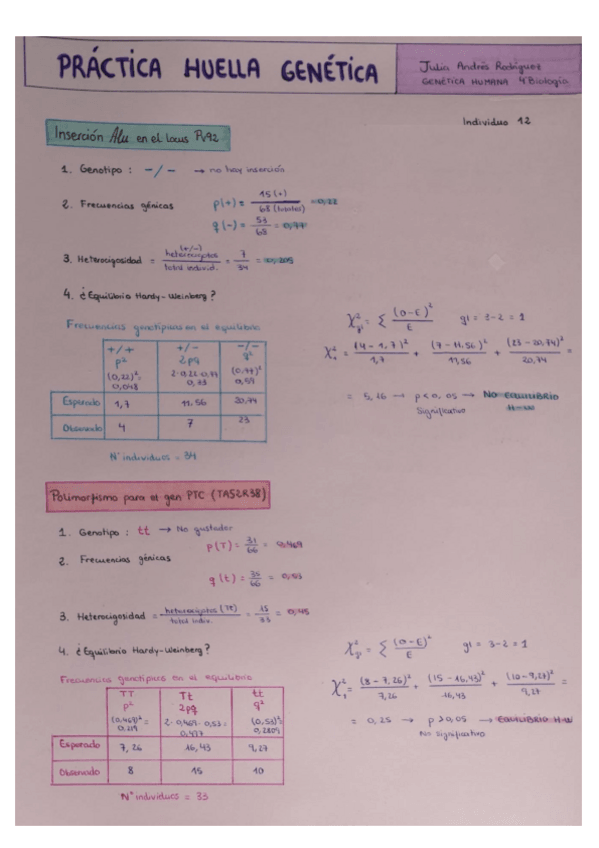 PRÁCTICA HUELLA GENÉTICA
Julia Andrés Rodríguez
GENÉTICA HUMANA 4º Biología
Individuo 12
Inserción Alu en el locus Pv92
1. Genotipo : -/- → no hay inserción
2. Frecuencias génicas
p(+) = 15(+) / 68 (totales) = 0,22
q(-) = 53 / 68 = 0,77
3. Heterocigosidad = (+/-) heterocigotos / total individ. = 7 / 34 = 0,205
4. ¿Equilibrio Hardy-Weinberg?
Frecuencias genotípicas en el equilibrio
+/+ +/- -/-
p² 2pq q²
(0,22)² = 0,048 2·0,22·0,77 0,33 (0,77)² 0,59
Esperado 1,7 11.56 20,74
Observado 4 7 23
Nº individuos = 34
χ² gl = Σ (O-E)² / E gl = 3-2 = 1
χ² 1 = (4-1,7)² / 1,7 + (7-11,56)² / 11,56 + (23-20,74)² / 20,74 =
= 5,16 → p<0,05 → NO EQUILIBRIO
Significativo
Polimorfismo para el gen PTC (TAS2R38)
1. Genotipo : tt → No gustador
p(T) = 31 / 66 = 0,469
2. Frecuencias génicas
q(t) = 35 / 66 = 0,53
3. Heterocigosidad = heterocigotos (Tt) / total indiv. = 15 / 33 = 0,45
4. ¿Equilibrio Hardy-Weinberg?
Frecuencias genotípicas en el equilibrio
TT Tt tt
p² 2pq q²
(0,469)² = 0,219 2·0,469·0,53 = 0,497 (0,53)² = 0,2809
Esperado 7,26 16,43 9,27
Observado 8 15 10
Nº individuos = 33
χ² = Σ (O-E)² / E gl = 3-2 = 1
χ² 1 = (8-7,26)² / 7,26 + (15-16,43)² / 16,43 + (10-9,27)² / 9,27 =
= 0,25 → p>0,05 → EQUILIBRIO H-W
No significativo